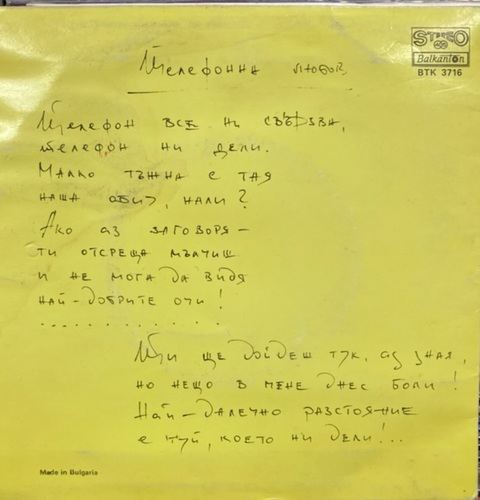 STEREO
Balkanton
BTK 3716
Телефонна любов
Телефон все ни свързва,
телефон ни дели.
Малко тъжна е тая
наша обич, нали?
Ако аз заговоря –
ти отсреща мълчиш
и не мога да видя
най-добрите очи!
. . . . . . . . . . . .
Ти ще дойдеш тук, аз зная,
но нещо в мене днес боли!
Най-далечно разстояние
е туй, което ни дели!...
Made in Bulgaria